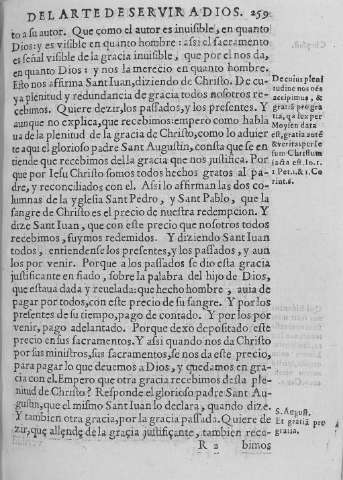 DEL ARTE DE SERVIR A DIOS. 259
to a su autor. Que como el autor es inuisible, en quanto
Dios: y es visible en quanto hombre: assi el sacramento
es señal visible de la gracia inuisible, que por el nos da,
en quanto Dios: y nos la merecio en quanto hombre.
Esto nos affirma Sant Iuan, diziendo de Christo. De cu-
ya plenitud y redundancia de gracia todos nosotros re-
cebimos. Quiere dezir, los passados, y los presentes. Y
aunque no explica, que recebimos: empero como habla
ua de la plenitud de la gracia de Christo, como lo aduier
te aqui el glorioso padre Sant Augustin, consta que se en
tiende que recebimos della gracia que nos justifica. Por
que por Iesu Christo somos todos hechos gratos al pa-
dre, y reconciliados con el. Assi lo affirman las dos co-
lumnas de la yglesia Sant Pedro, y Sant Pablo, que la
sangre de Christo es el precio de nuestra redempcion. Y
dize Sant Iuan, que con este precio que nosotros todos
recebimos, fuymos redemidos. Y diziendo Sant Iuan
todos, entiendense los presentes, y los passados, y aun
los por venir. Porque a los passados se dio esta gracia
justificante en fiado, sobre la palabra del hijo de Dios,
que estaua dada y reuelada: que hecho hombre, auia de
pagar por todos, con este precio de su sangre. Y por los
presentes de su tiempo, pago de contado. Y por los por
venir, pago adelantado. Porque dexo depositado este
precio en sus sacramentos. Y assi quando nos da Christo
por sus ministros, sus sacramentos, se nos da este precio,
para pagar lo que deuemos a Dios, y quedamos en gra-
cia con el. Empero que otra gracia recebimos desta ple-
nitud de Christo? Responde el glorioso padre Sant Au-
gustin, que el mismo Sant Iuan lo declara, quando dize.
Y tambien otra gracia, por la gracia passada. Quiere de
zir, que allende de la gracia justificante, tambien rece-
R 2 bimos
De cuius pleni
tudine nos oēs
accipimus, &
gratiā pro gra
tia, qa lex per
Moysen data
est, gratia autē
& veritas per Ie
sum Christum
facta est. Io. 1.
1 Pet. 1. & 1. Co
rint. 6.
S. August.
Et gratiā pro
gratia.